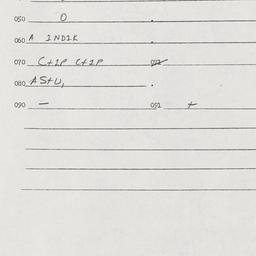 050 0 .
060 A INDIK .
070 C+IP C+IP 092
080 AS+U, .
090 — 091 +